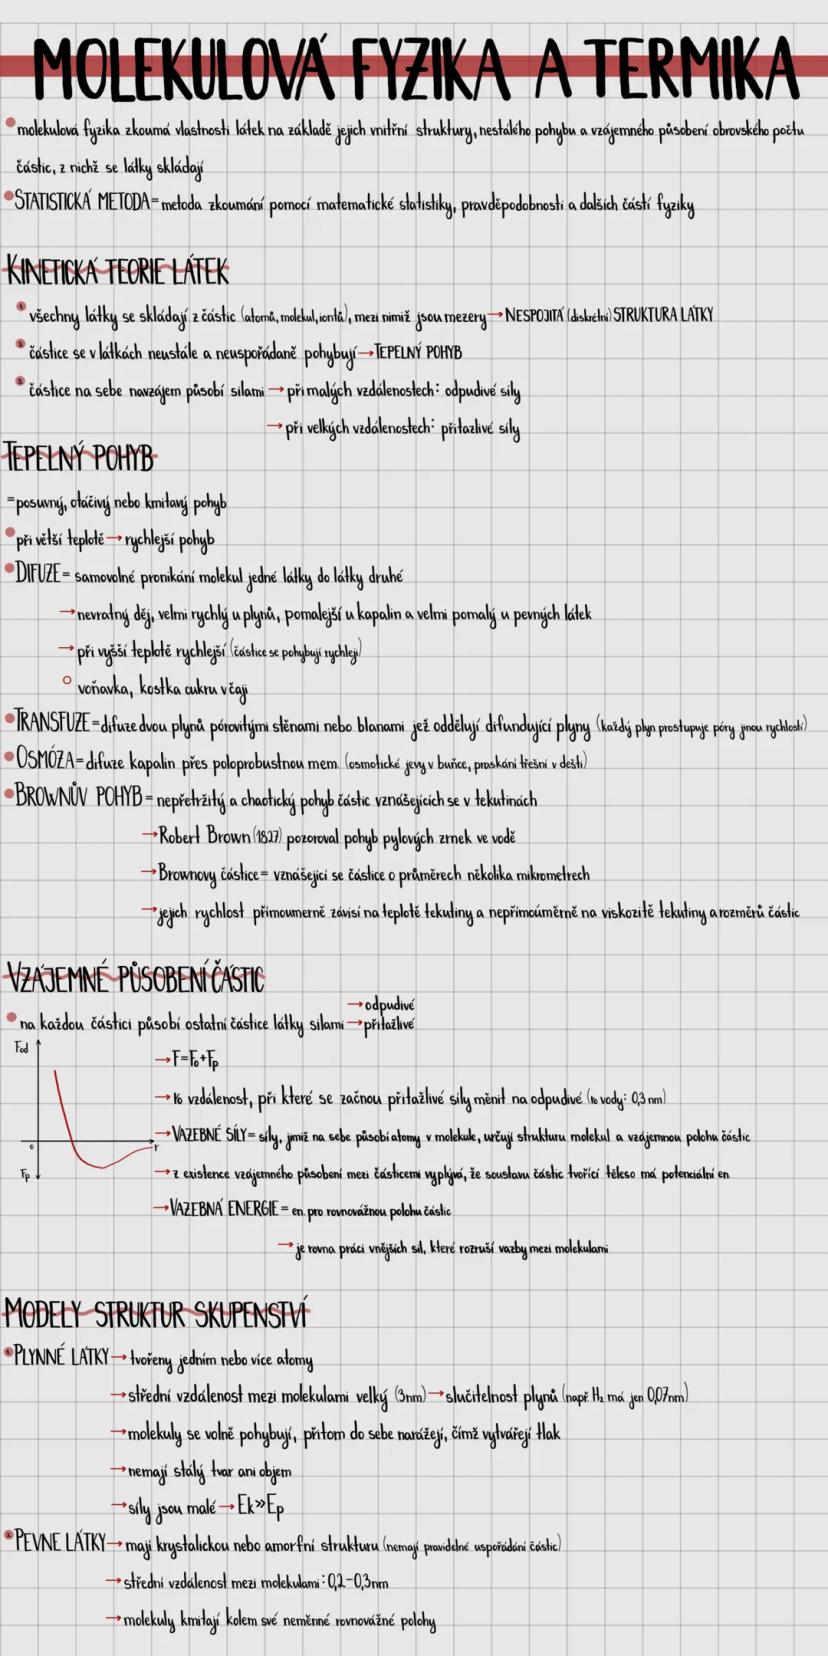 MOLEKULOVÁ FYZIKA A TERMIKA
molekulová fyzika zkoumá vlastnosti látek na základě jejich vnitřní struktury, nestálého pohybu a vzájemného působení obrovského počtu
částic, z nichž se látky skládají
STATISTICKÁ METODA = metoda zkoumání pomocí matematické statistiky, pravděpodobnosti a dalších částí fyziky
KINETICKÁ TEORIE LÁTEK
1 všechny látky se skládají z částic (atomů, molekul, iontů), mezi nimiž jsou mezery → NESPOJITÁ (diskrétní) STRUKTURA LÁTKY
2 částice se v látkách neustále a neuspořádaně pohybují → TEPELNÝ POHYB
3 částice na sebe navzájem působí silami → při malých vzdálenostech: odpudivé síly
→ při velkých vzdálenostech: přitazlivé síly
TEPELNÝ POHYB
= posuvný, otáčivý nebo kmitavý pohyb
při větší teplotě → rychlejší pohyb
DIFUZE = samovolné pronikání molekul jedné látky do látky druhé
→ nevratný děj, velmi rychlý u plynů, pomalejší u kapalin a velmi pomalý u pevných látek
→ při vyšší teplotě rychlejší (částice se pohybují rychleji)
voňavka, kostka cukru v čaji
TRANSFUZE = difuze dvou plynů pórovitými stěnami nebo blanami jež oddělují difundující plyny (každý plyn prostupuje póry jinou rychlostí)
OSMÓZA = difuze kapalin přes poloprobustnou mem. (osmotické jevy v buňce, praskání třešní v dešti)
BROWNŮV POHYB = nepřetržitý a chaotický pohyb částic vznášejících se v tekutinách
→ Robert Brown (1827) pozoroval pohyb pylových zrnek ve vodě
→ Brownovy částice = vznášející se částice o průměrech několika mikrometrech
→ jejich rychlost přímoumerně závisí na teplotě tekutiny a nepřímoúměrně na viskozitě tekutiny a rozměrů částic
VZÁJEMNÉ PŮSOBENÍ ČÁSTIC
→ odpudivé
na každou částici působí ostatní částice látky silami → přitažlivé
Fod
→ F = Fo + Fp
→ r0 vzdálenost, při které se začnou přitažlivé síly měnit na odpudivé (r0 vody: 0,3 nm)
→ VAZEBNÉ SÍLY = síly, jimiž na sebe působí atomy v molekule, určují strukturu molekul a vzájemnou polohu částic
0 r
Fp
→ z existence vzájemného působení mezi částicemi vyplývá, že soustava částic tvořící těleso má potenciální en
→ VAZEBNÁ ENERGIE = en. pro rovnovážnou polohu částic
→ je rovna práci vnějších sil, které rozruší vazby mezi molekulami
MODELY STRUKTUR SKUPENSTVÍ
1 PLYNNÉ LÁTKY → tvořeny jedním nebo více atomy
→ střední vzdálenost mezi molekulami velký (3nm) → slučitelnost plynů (např. H2 má jen 0,07nm)
→ molekuly se volně pohybují, přitom do sebe narážejí, čímž vytvářejí tlak
→ nemají stálý tvar ani objem
→ síly jsou malé → Ek >> Ep
2 PEVNE LÁTKY → mají krystalickou nebo amorfní strukturu (nemají pravidelné uspořádání částic)
→ střední vzdálenost mezi molekulami: 0,2 - 0,3nm
→ molekuly kmitají kolem své neměnné rovnovážné polohy